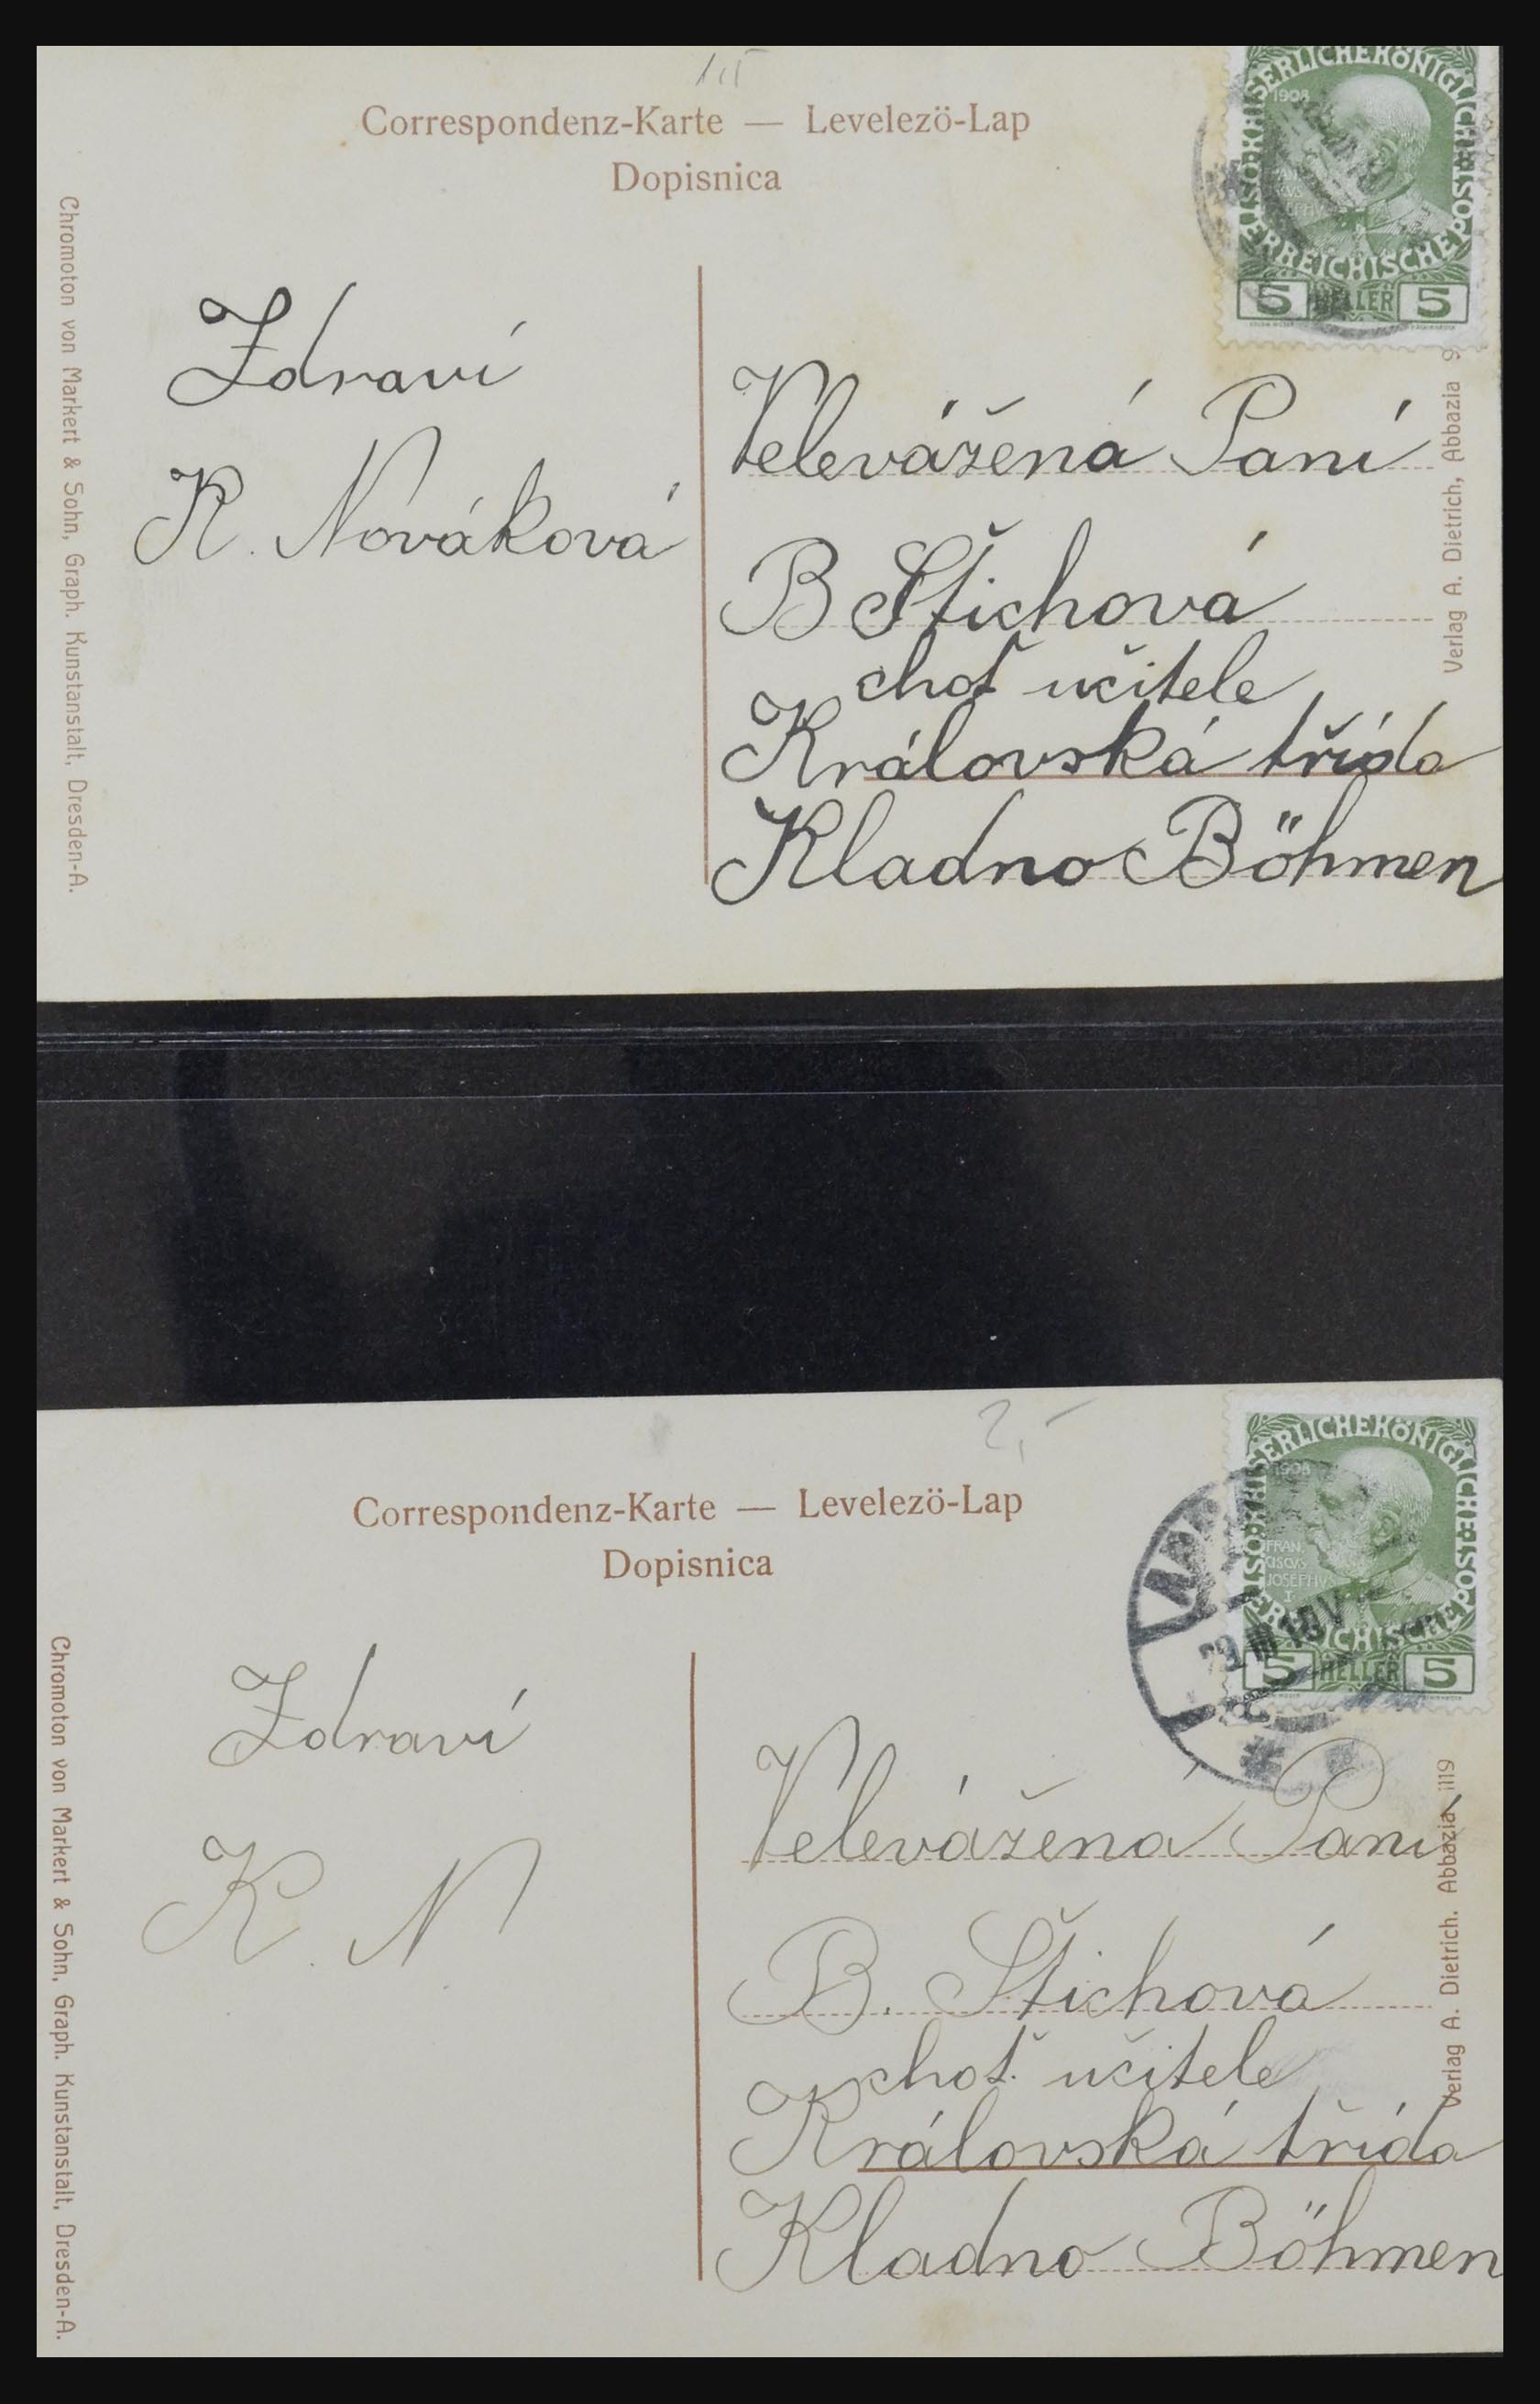 Correspondenz-Karte — Levelezö-Lap
Dopisnica
Chromoton von Markert & Sohn, Graph. Kunstanstalt, Dresden-A.
Zdraví
K. Nováková
1908
SERLICHEKÖNIGLICHE
5 HELLER 5
Velevážená Paní
B Štichová
choť učitele
Královská třída
Kladno Böhmen
Verlag A. Dietrich, Abbazia 9
2,-
Correspondenz-Karte — Levelezö-Lap
Dopisnica
Chromoton von Markert & Sohn, Graph. Kunstanstalt, Dresden-A.
Zdraví
K. N
1908
SERLICHEKÖNIGLICHE
FRAN
CISCVS
JOSEPHV
I
5 HELLER 5
Velevážená Paní
B. Štichová
choť učitele
Královská třída
Kladno Böhmen
Verlag A. Dietrich. Abbazia 1119